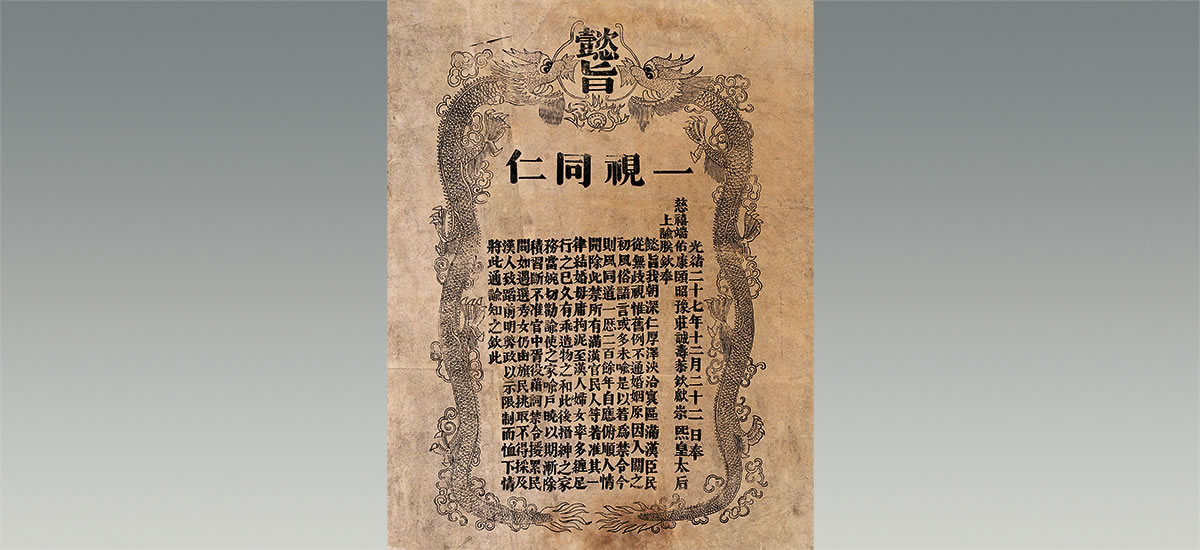 懿旨
一視同仁
光緒二十七年十二月二十二日奉
慈禧端佑康頤昭豫莊誠壽恭欽獻崇熙皇太后
上諭朕欽奉
懿旨我朝深仁厚澤浹洽寰區滿漢臣民
從無歧視惟舊例不通婚姻原因入關之
初風俗語言或多未喻是以著為禁令今
則風同道一歷二百餘年自應俯順人情
開除此禁所有滿漢官民人等著准其一
律結婚毋庸拘泥至漢人婦女率多纏足
行之已久有乖造物之和此後搢紳之家
務當婉切勸諭使之家喻戶曉以期漸除
積習斷不准官中胥役藉詞禁令擾累民
間如遇選秀女仍由旗民挑取不得採及
漢人致蹈前明弊政以示限制而恤下情
將此通諭知之欽此